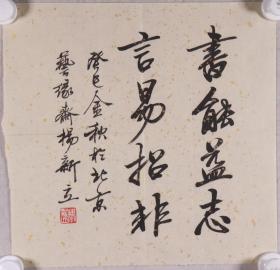 書能益志
言易招非
癸巳金秋於北京
藝璟齋楊新立